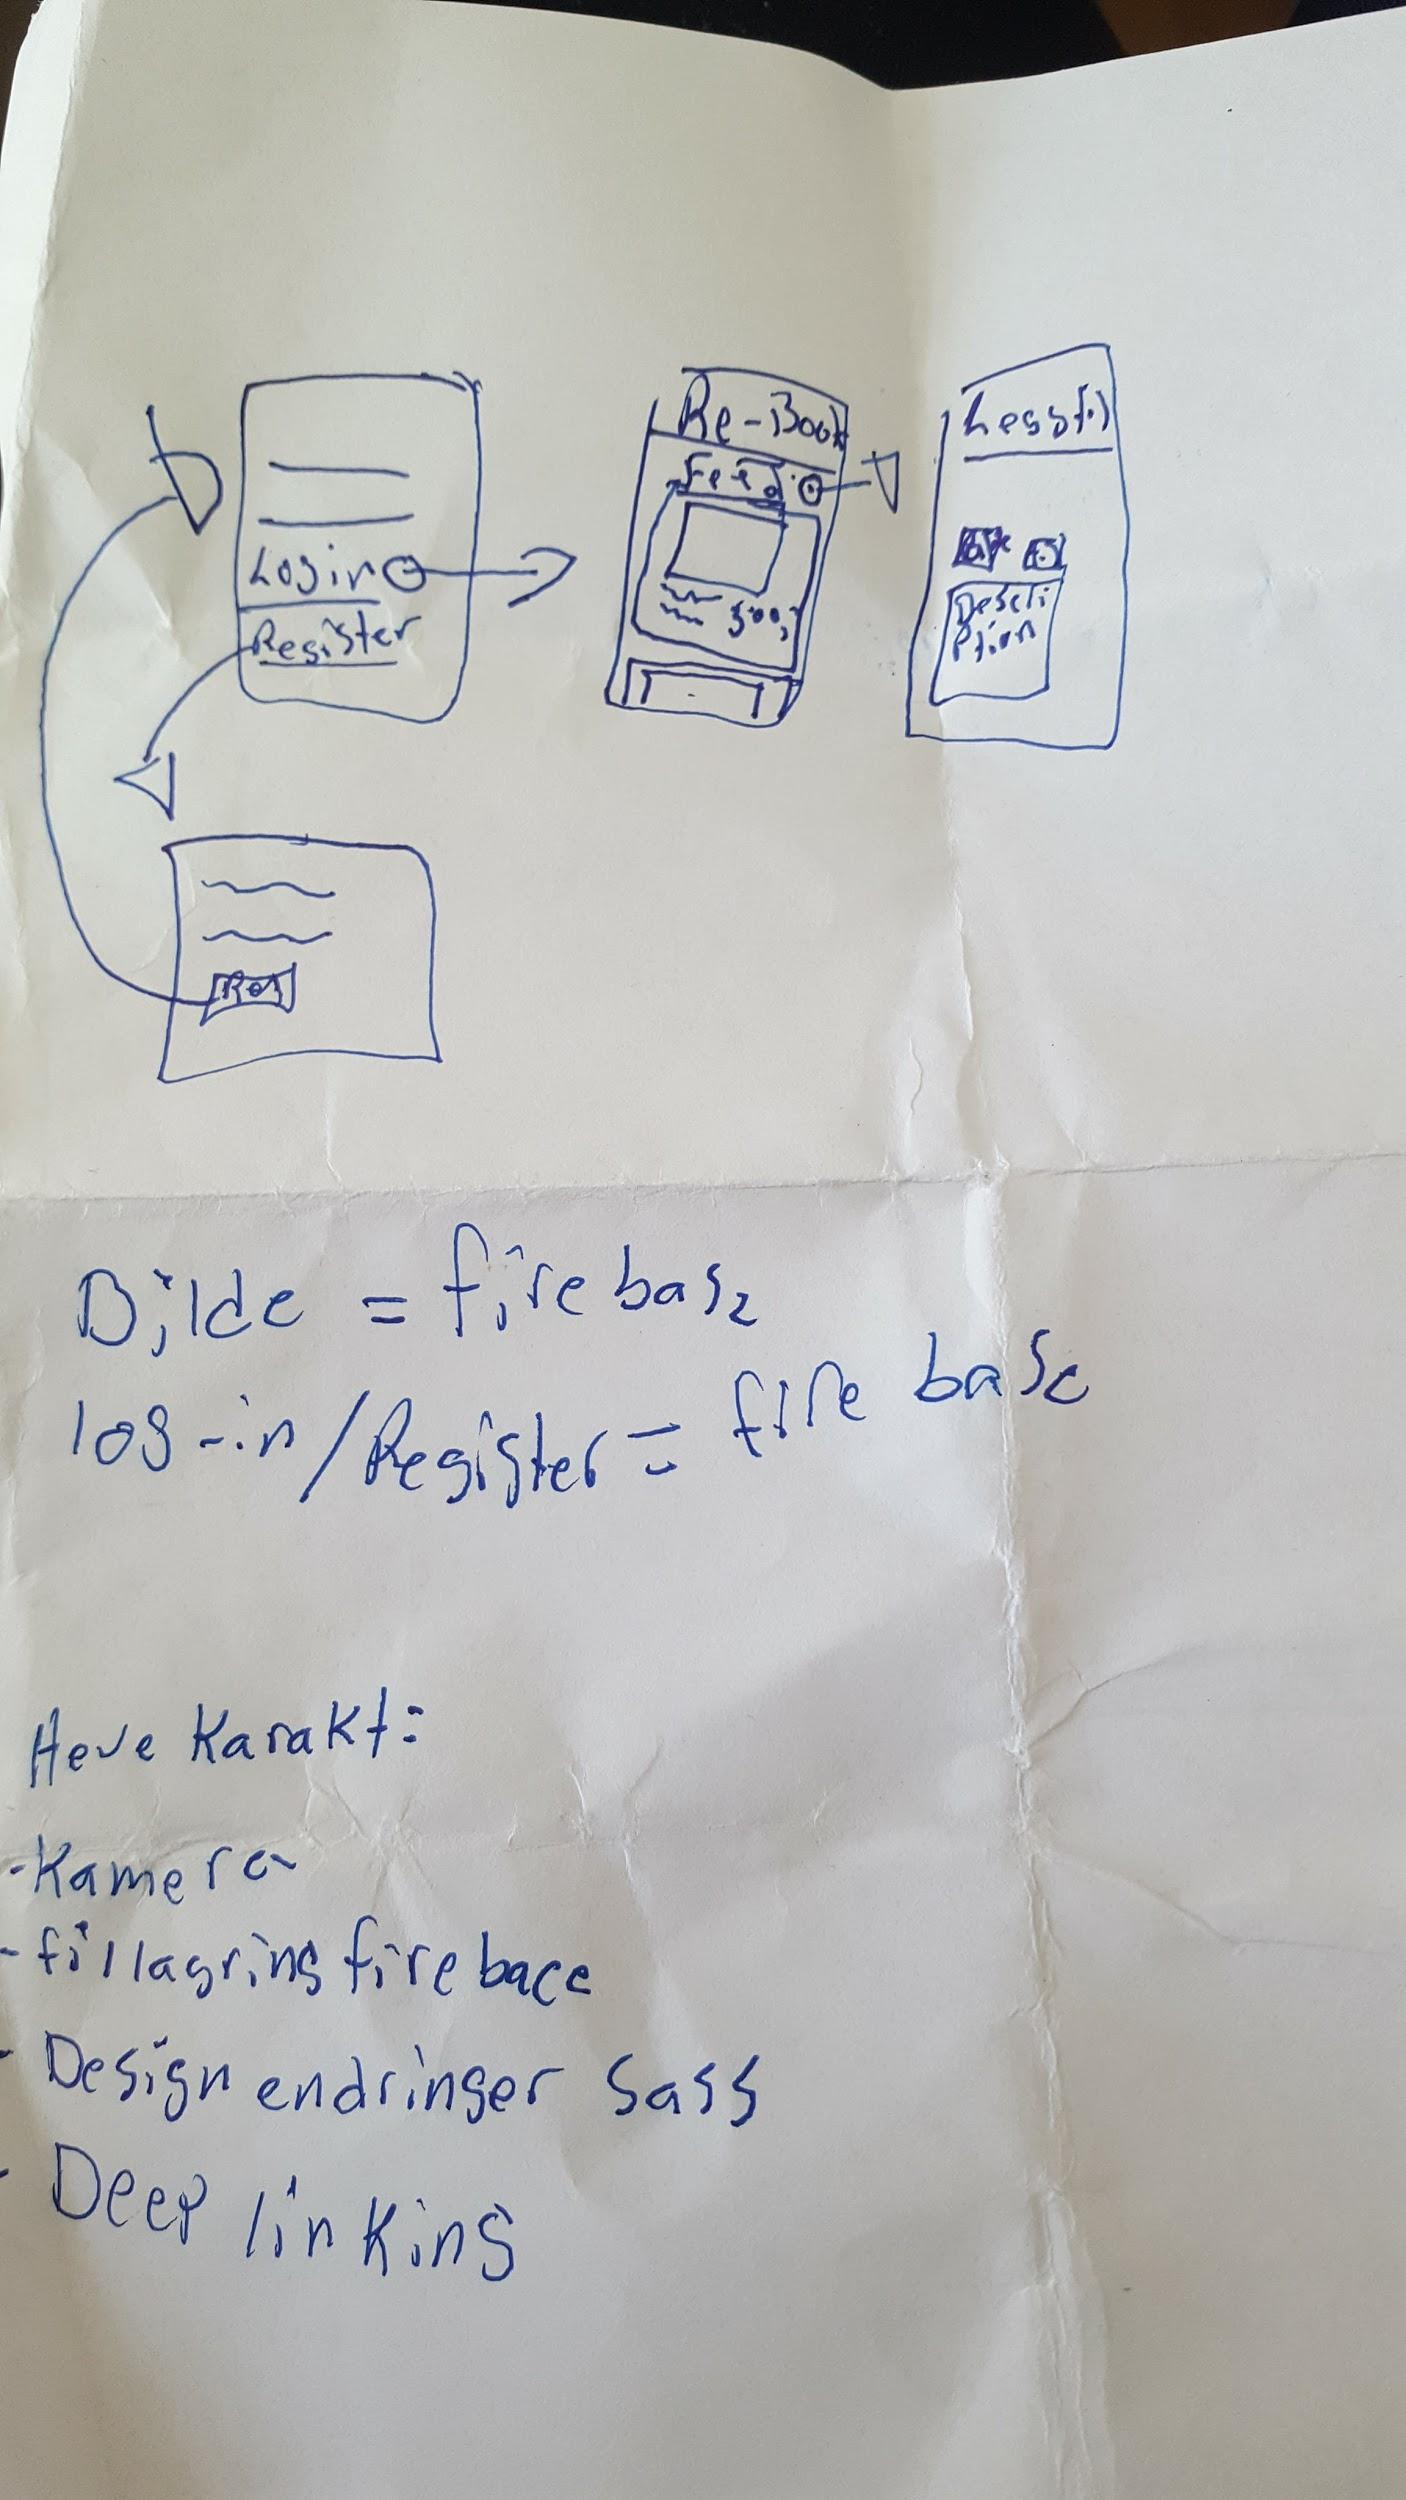 Login
Register
Reg
Re-Book
Feed
500,-
Descri
ption
Bilde = firebase
log-in/Register = fire base
Heve Karakt:
-Kamera
-fillagring firebace
- Design endringer sass
- Deep linking